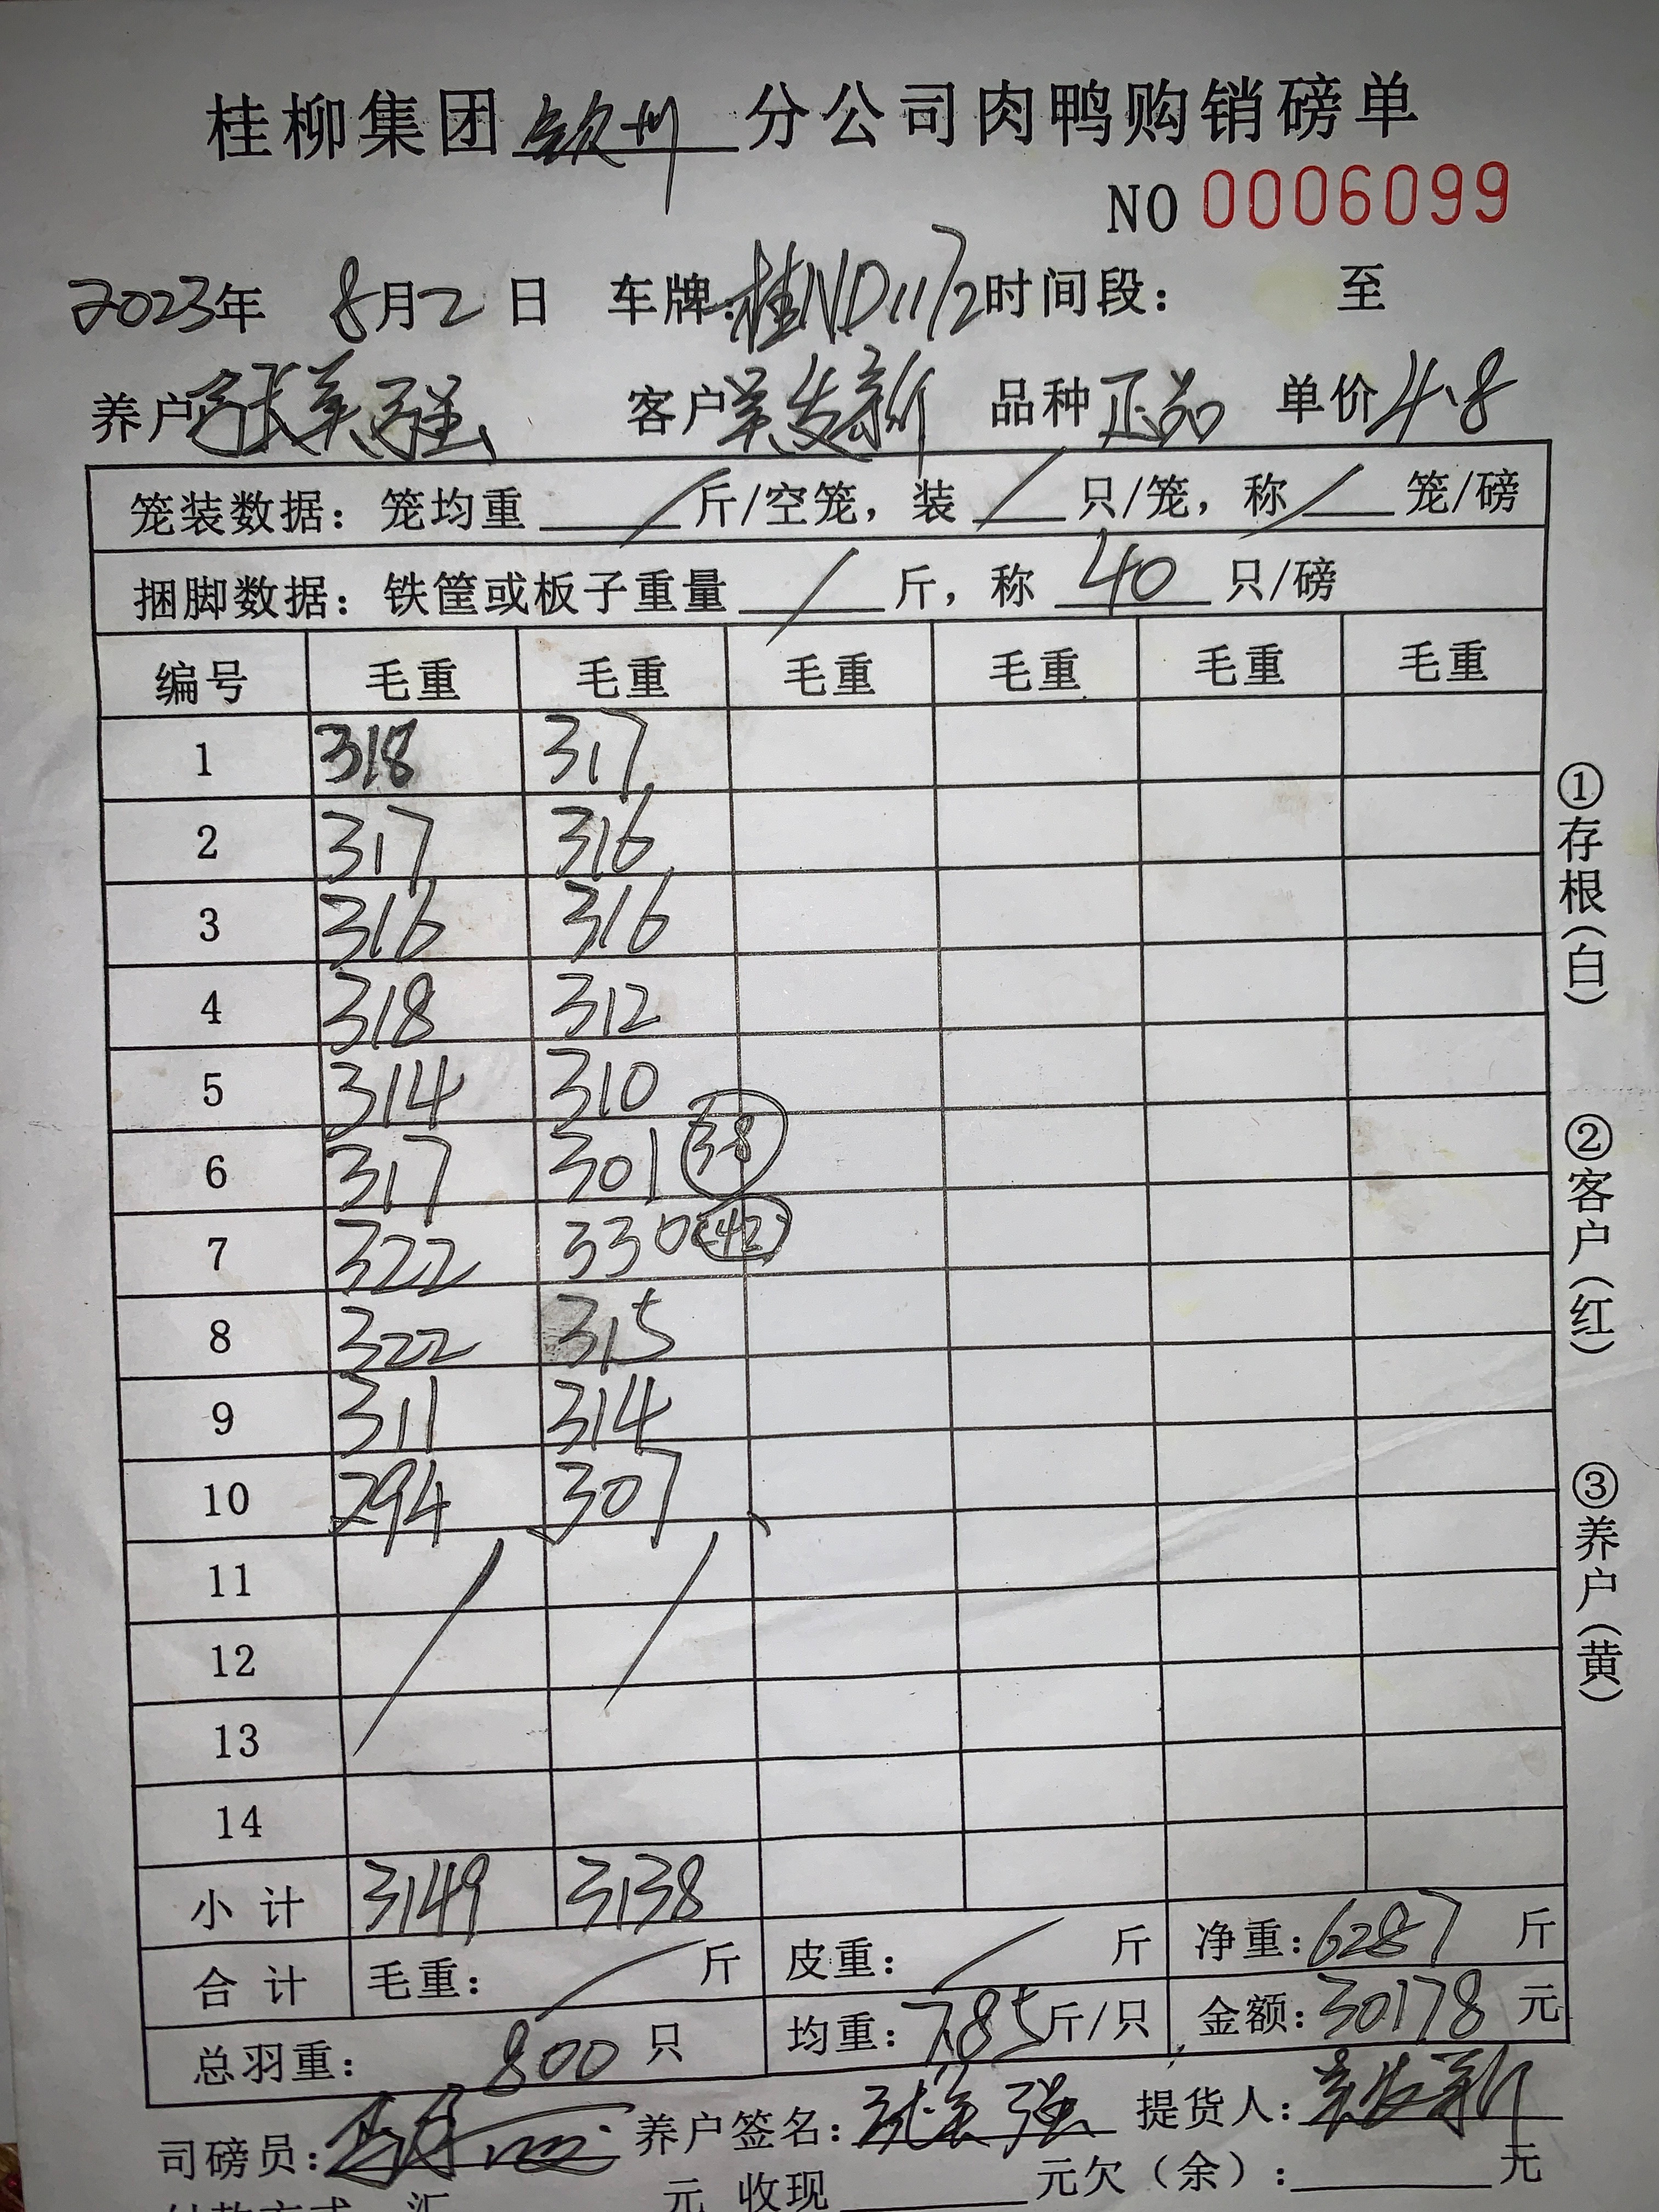 桂柳集团 钦州 分公司肉鸭购销磅单
NO 0006099
2023年 8月2日 车牌:桂ND1172 时间段: 至
养户 张美强 客户 吴发新 品种 正品 单价 4.8
笼装数据:笼均重 / 斤/空笼,装 / 只/笼,称 / 笼/磅
捆脚数据:铁筐或板子重量 / 斤,称 40 只/磅
编号 毛重 毛重 毛重 毛重 毛重 毛重
1 318 317
2 317 316
3 316 316
4 318 312
5 314 310
6 317 301 (38)
7 322 330 (42)
8 322 315
9 311 314
10 294 307
11 / /
12
13
14
小计 3149 3138
合计 毛重: / 斤 皮重: / 斤 净重:6287 斤
总羽重: 800 只 均重:7.85 斤/只 金额:30178 元
司磅员: 养户签名:张美强 提货人:吴发新
付款方式 汇 元 收现 元欠(余): 元
①存根(白)
②客户(红)
③养户(黄)